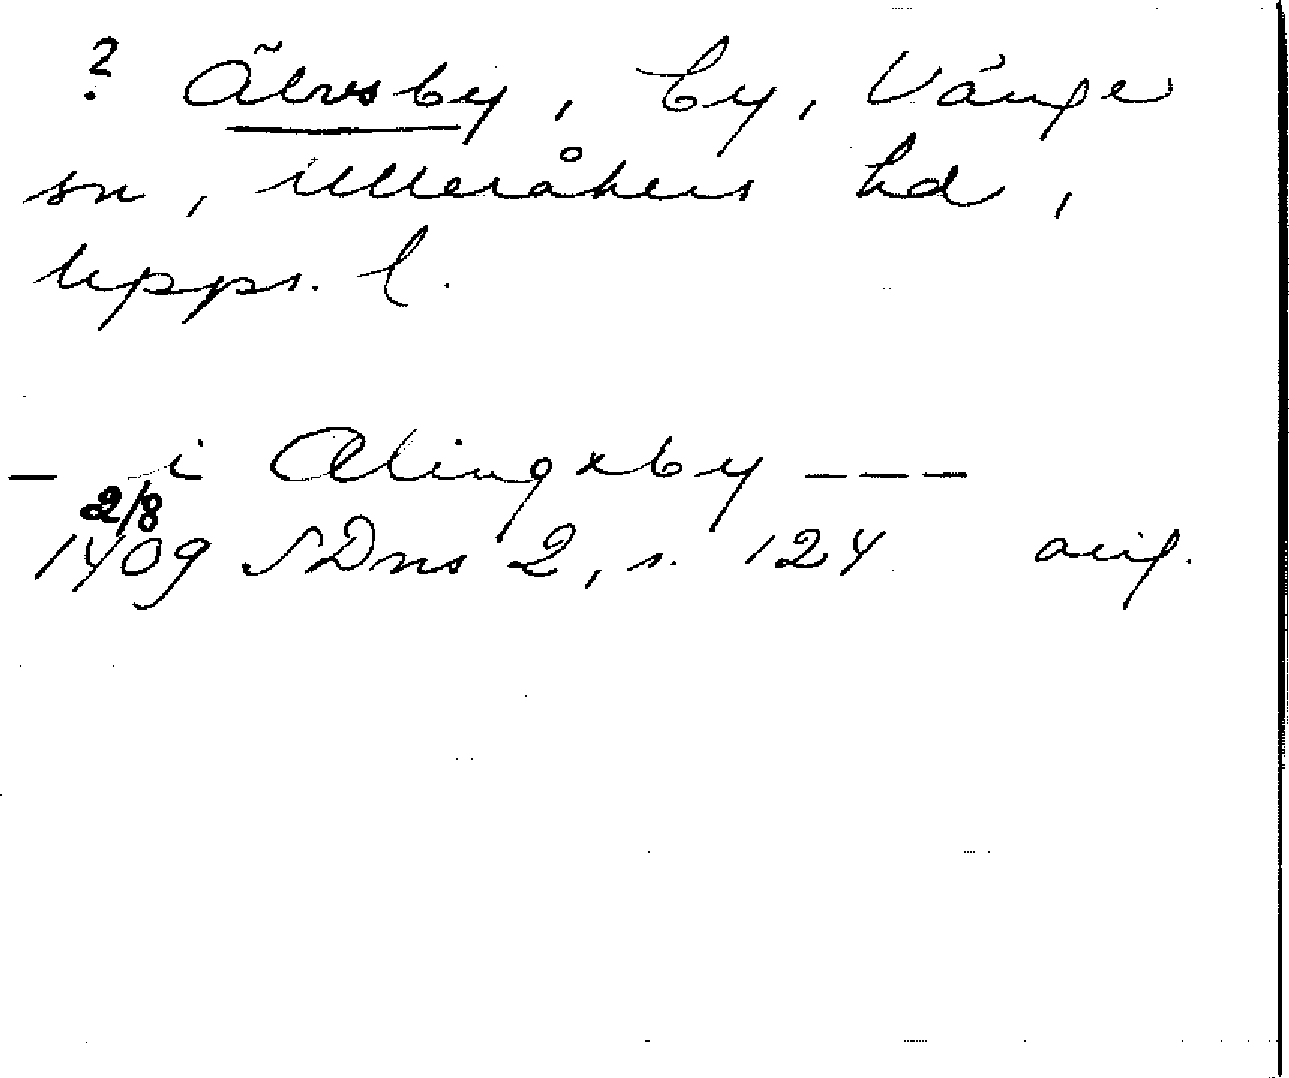 ? Älvsby, by, Vänge
sn, Ulleråkers hd,
Upps. l.
— i Alingxby ---
2/8
1409 SDns 2, s. 124 orig.